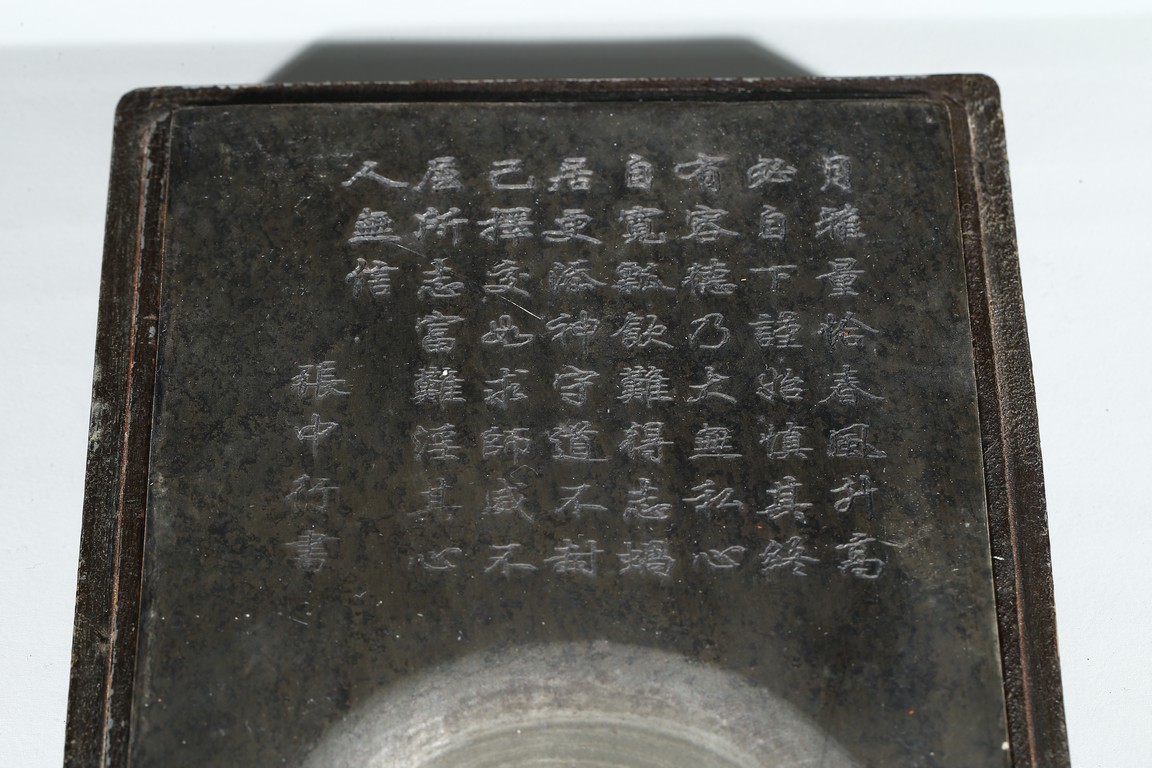 雅量恰春風升高
必自下謹始慎其終
有容德乃大無私心
自寬瓢飲難得志蝸
居更添神守道不封
己擇交如求師威不
屈所志富難淫其心
人無信
張中行書